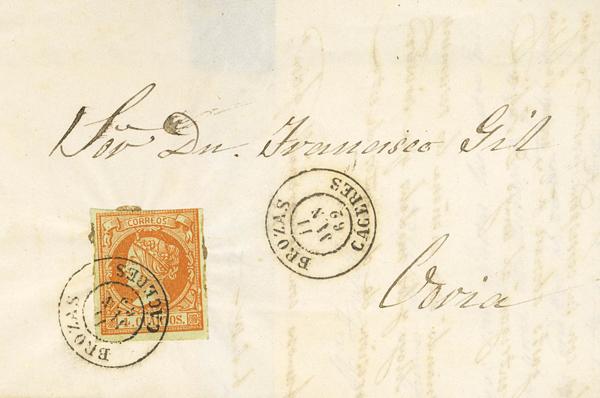 Sor Dn. Francisco Gil
CORREOS
BROZAS
CACERES
11
62
BROZAS
CACERES
Coria